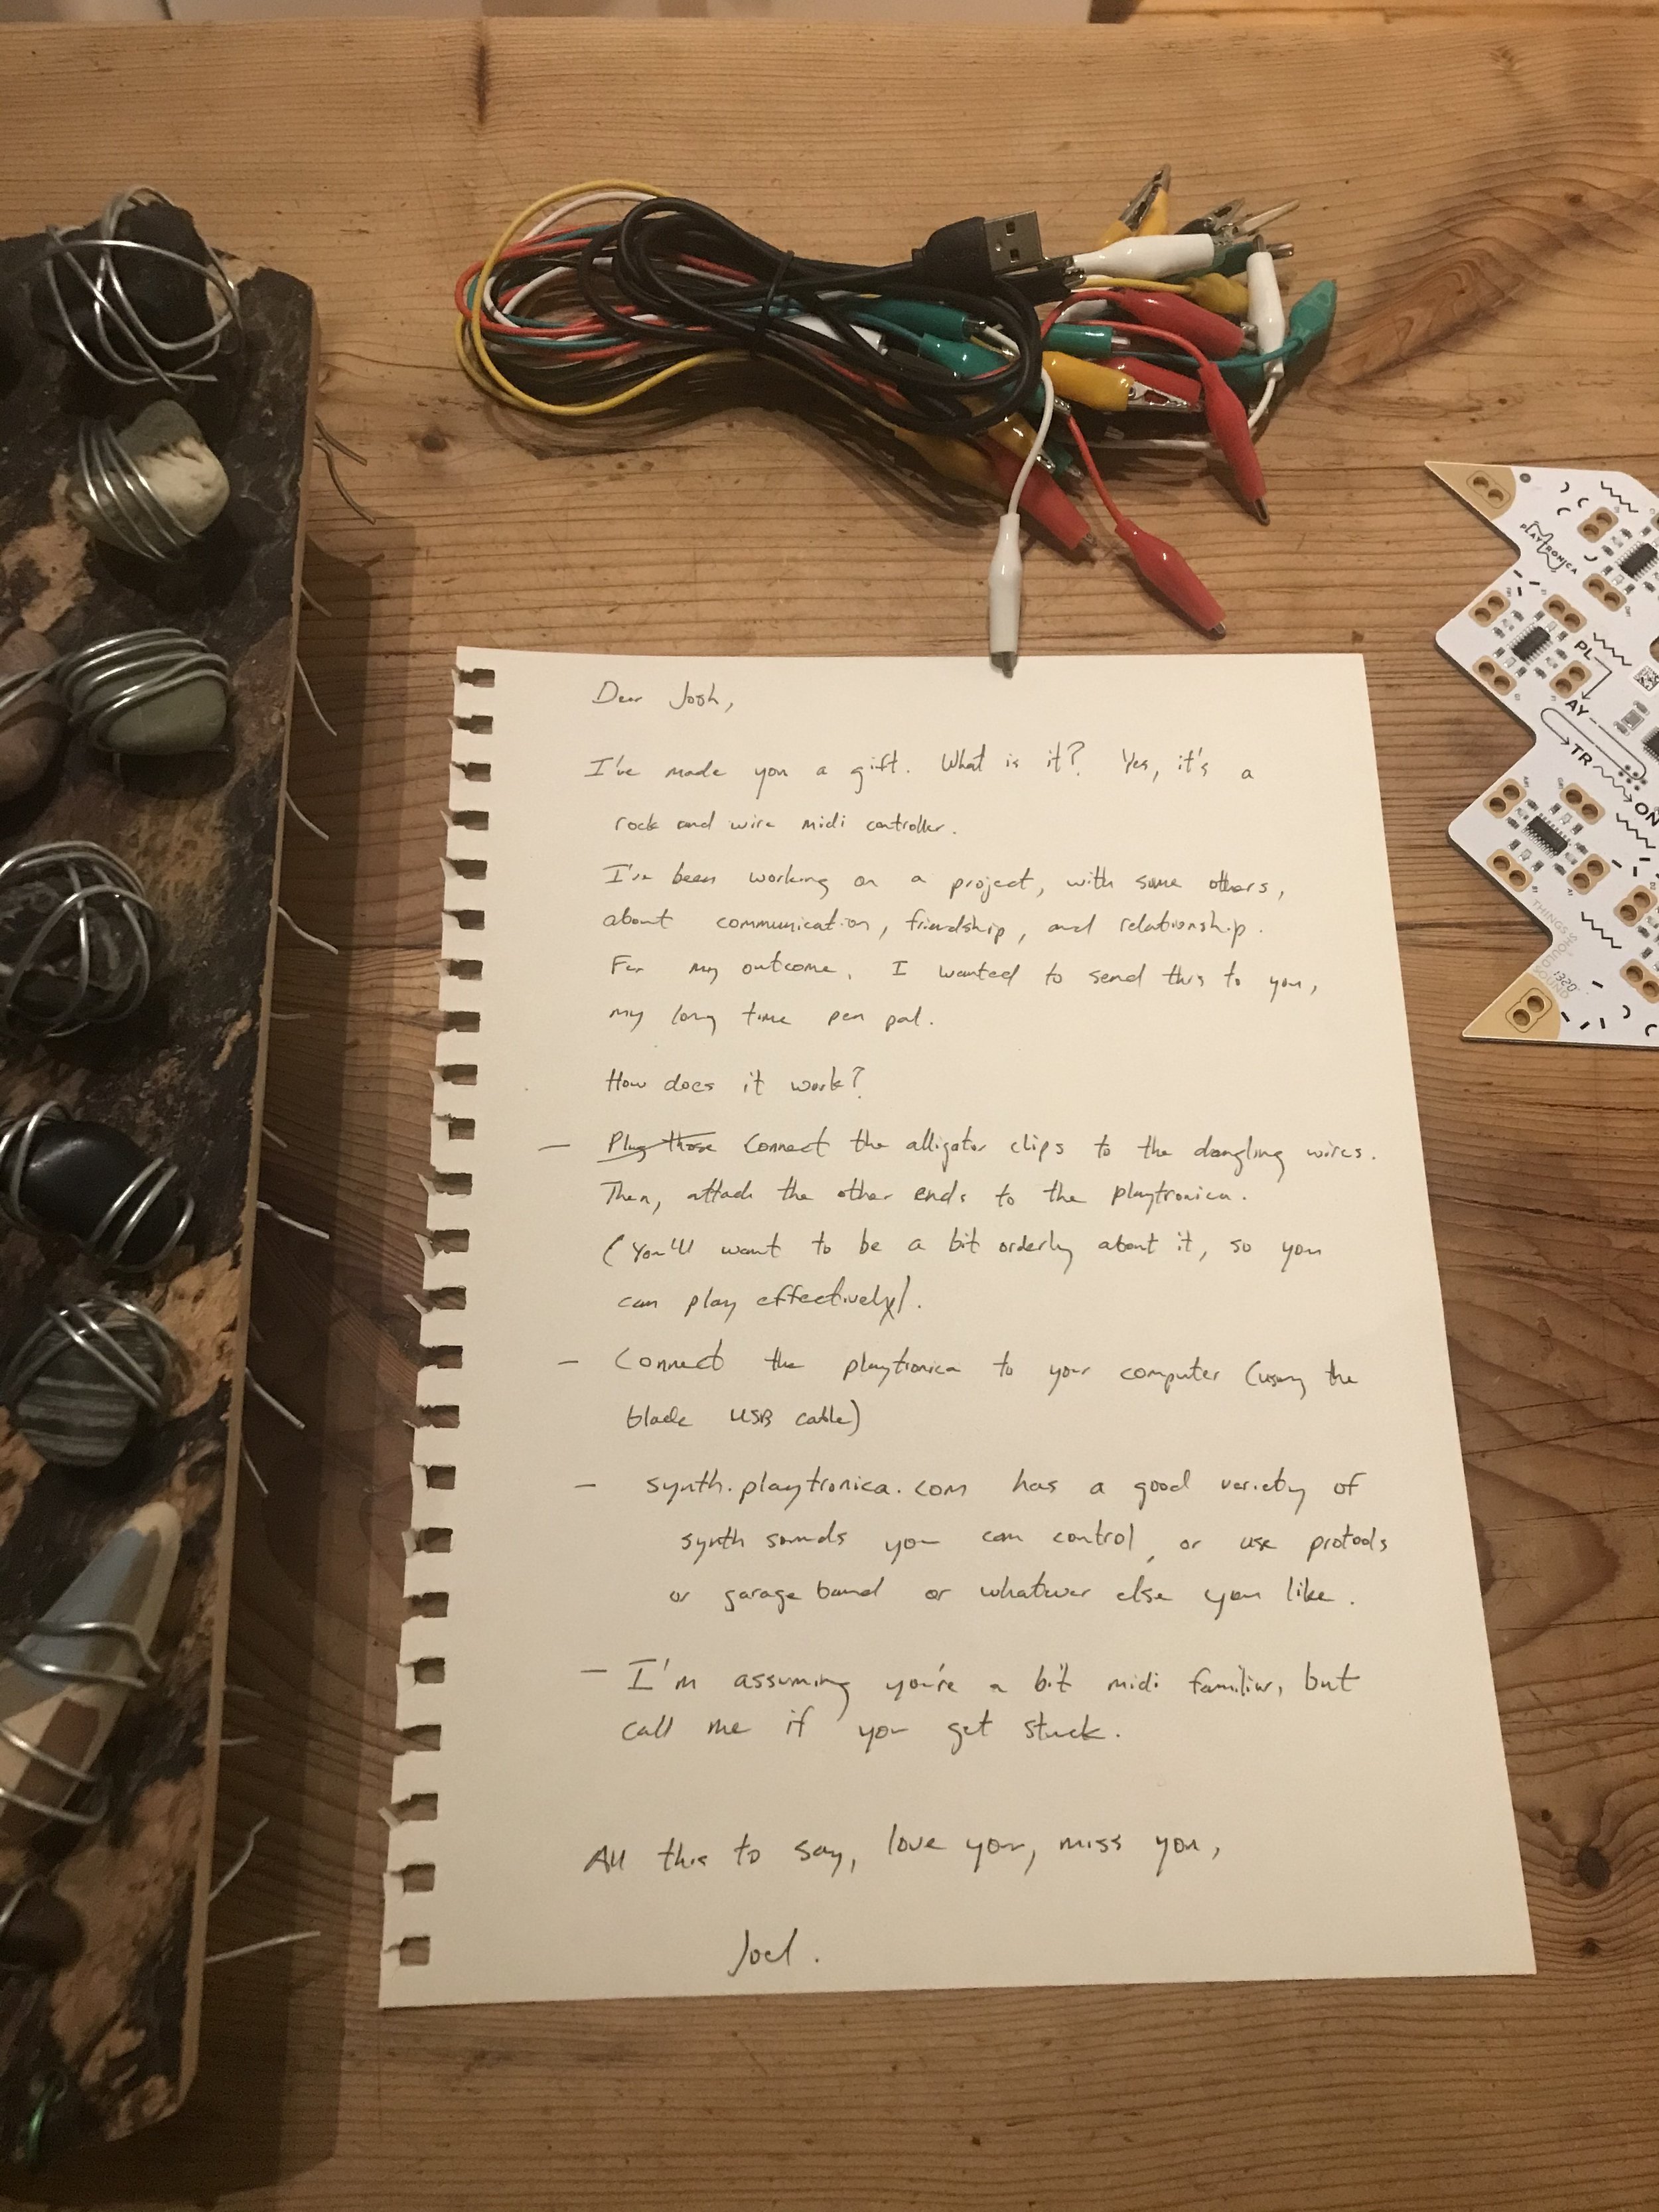 Dear Josh,
I've made you a gift. What is it? Yes, it's a
rock and wire midi controller.
I've been working on a project, with some others,
about communication, friendship, and relationship.
For my outcome, I wanted to send this to you,
my long time pen pal.
How does it work?
— Plug those Connect the alligator clips to the dangling wires.
Then, attach the other ends to the playtronica.
(You'll want to be a bit orderly about it, so you
can play effectively).
— Connect the playtronica to your computer (using the
black USB cable)
— synth.playtronica.com has a good variety of
synth sounds you can control, or use protools
or garage band or whatever else you like.
— I'm assuming you're a bit midi familiar, but
call me if you get stuck.
All this to say, love you, miss you,
Joel.
PLAYTRONICA
PL
AY
TR
ON
THINGS
SHOULD
SOUND